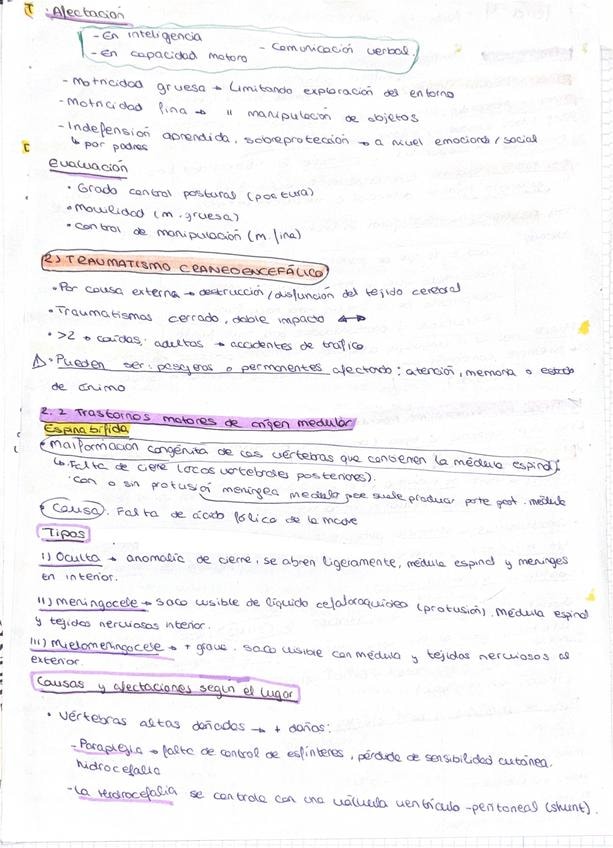 : Afectación
- En inteligencia
- En capacidad motora - Comunicación verbal.
- Motricidad gruesa → Limitando exploración del entorno
- Motricidad fina → " manipulación de objetos
- Indefensión aprendida, sobreprotección → a nivel emocional/social
↳ por padres
evaluación
• Grado control postural (postura)
• Movilidad (m. gruesa)
• Control de manipulación (m. fina)
2) TRAUMATISMO CRANEOENCEFÁLICO
• Por causa externa → destrucción/disfunción del tejido cerebral
• Traumatismos cerrado, doble impacto
• >2 → caídas; adultos → accidentes de tráfico
• Pueden ser: pasajeros o permanentes afectando: atención, memoria o estado
de ánimo
2.2 Trastornos motores de origen medular
Espina bífida
• Malformación congénita de las vértebras que contienen la médula espinal
↳ Falta de cierre (arcos vertebrales posteriores).
Con o sin protusión meníngea medula que suele producir parte post. médula
• Causa: Falta de ácido fólico de la madre
Tipos
I) Oculta → anomalía de cierre, se abren ligeramente, médula espinal y meninges
en interior.
II) meningocele → saco visible de líquido cefaloraquídeo (protusión). Médula espinal
y tejidos nerviosos interior.
III) Mielomeningocele → + grave. saco visible con médula y tejidos nerviosos al
exterior.
Causas y afectaciones según el lugar
• Vértebras altas dañadas → + daños:
- Paraplejia → falta de control de esfínteres, pérdida de sensibilidad cutánea,
hidrocefalia
- La Hidrocefalia se controla con una válvula ventrículo-peritoneal (shunt).